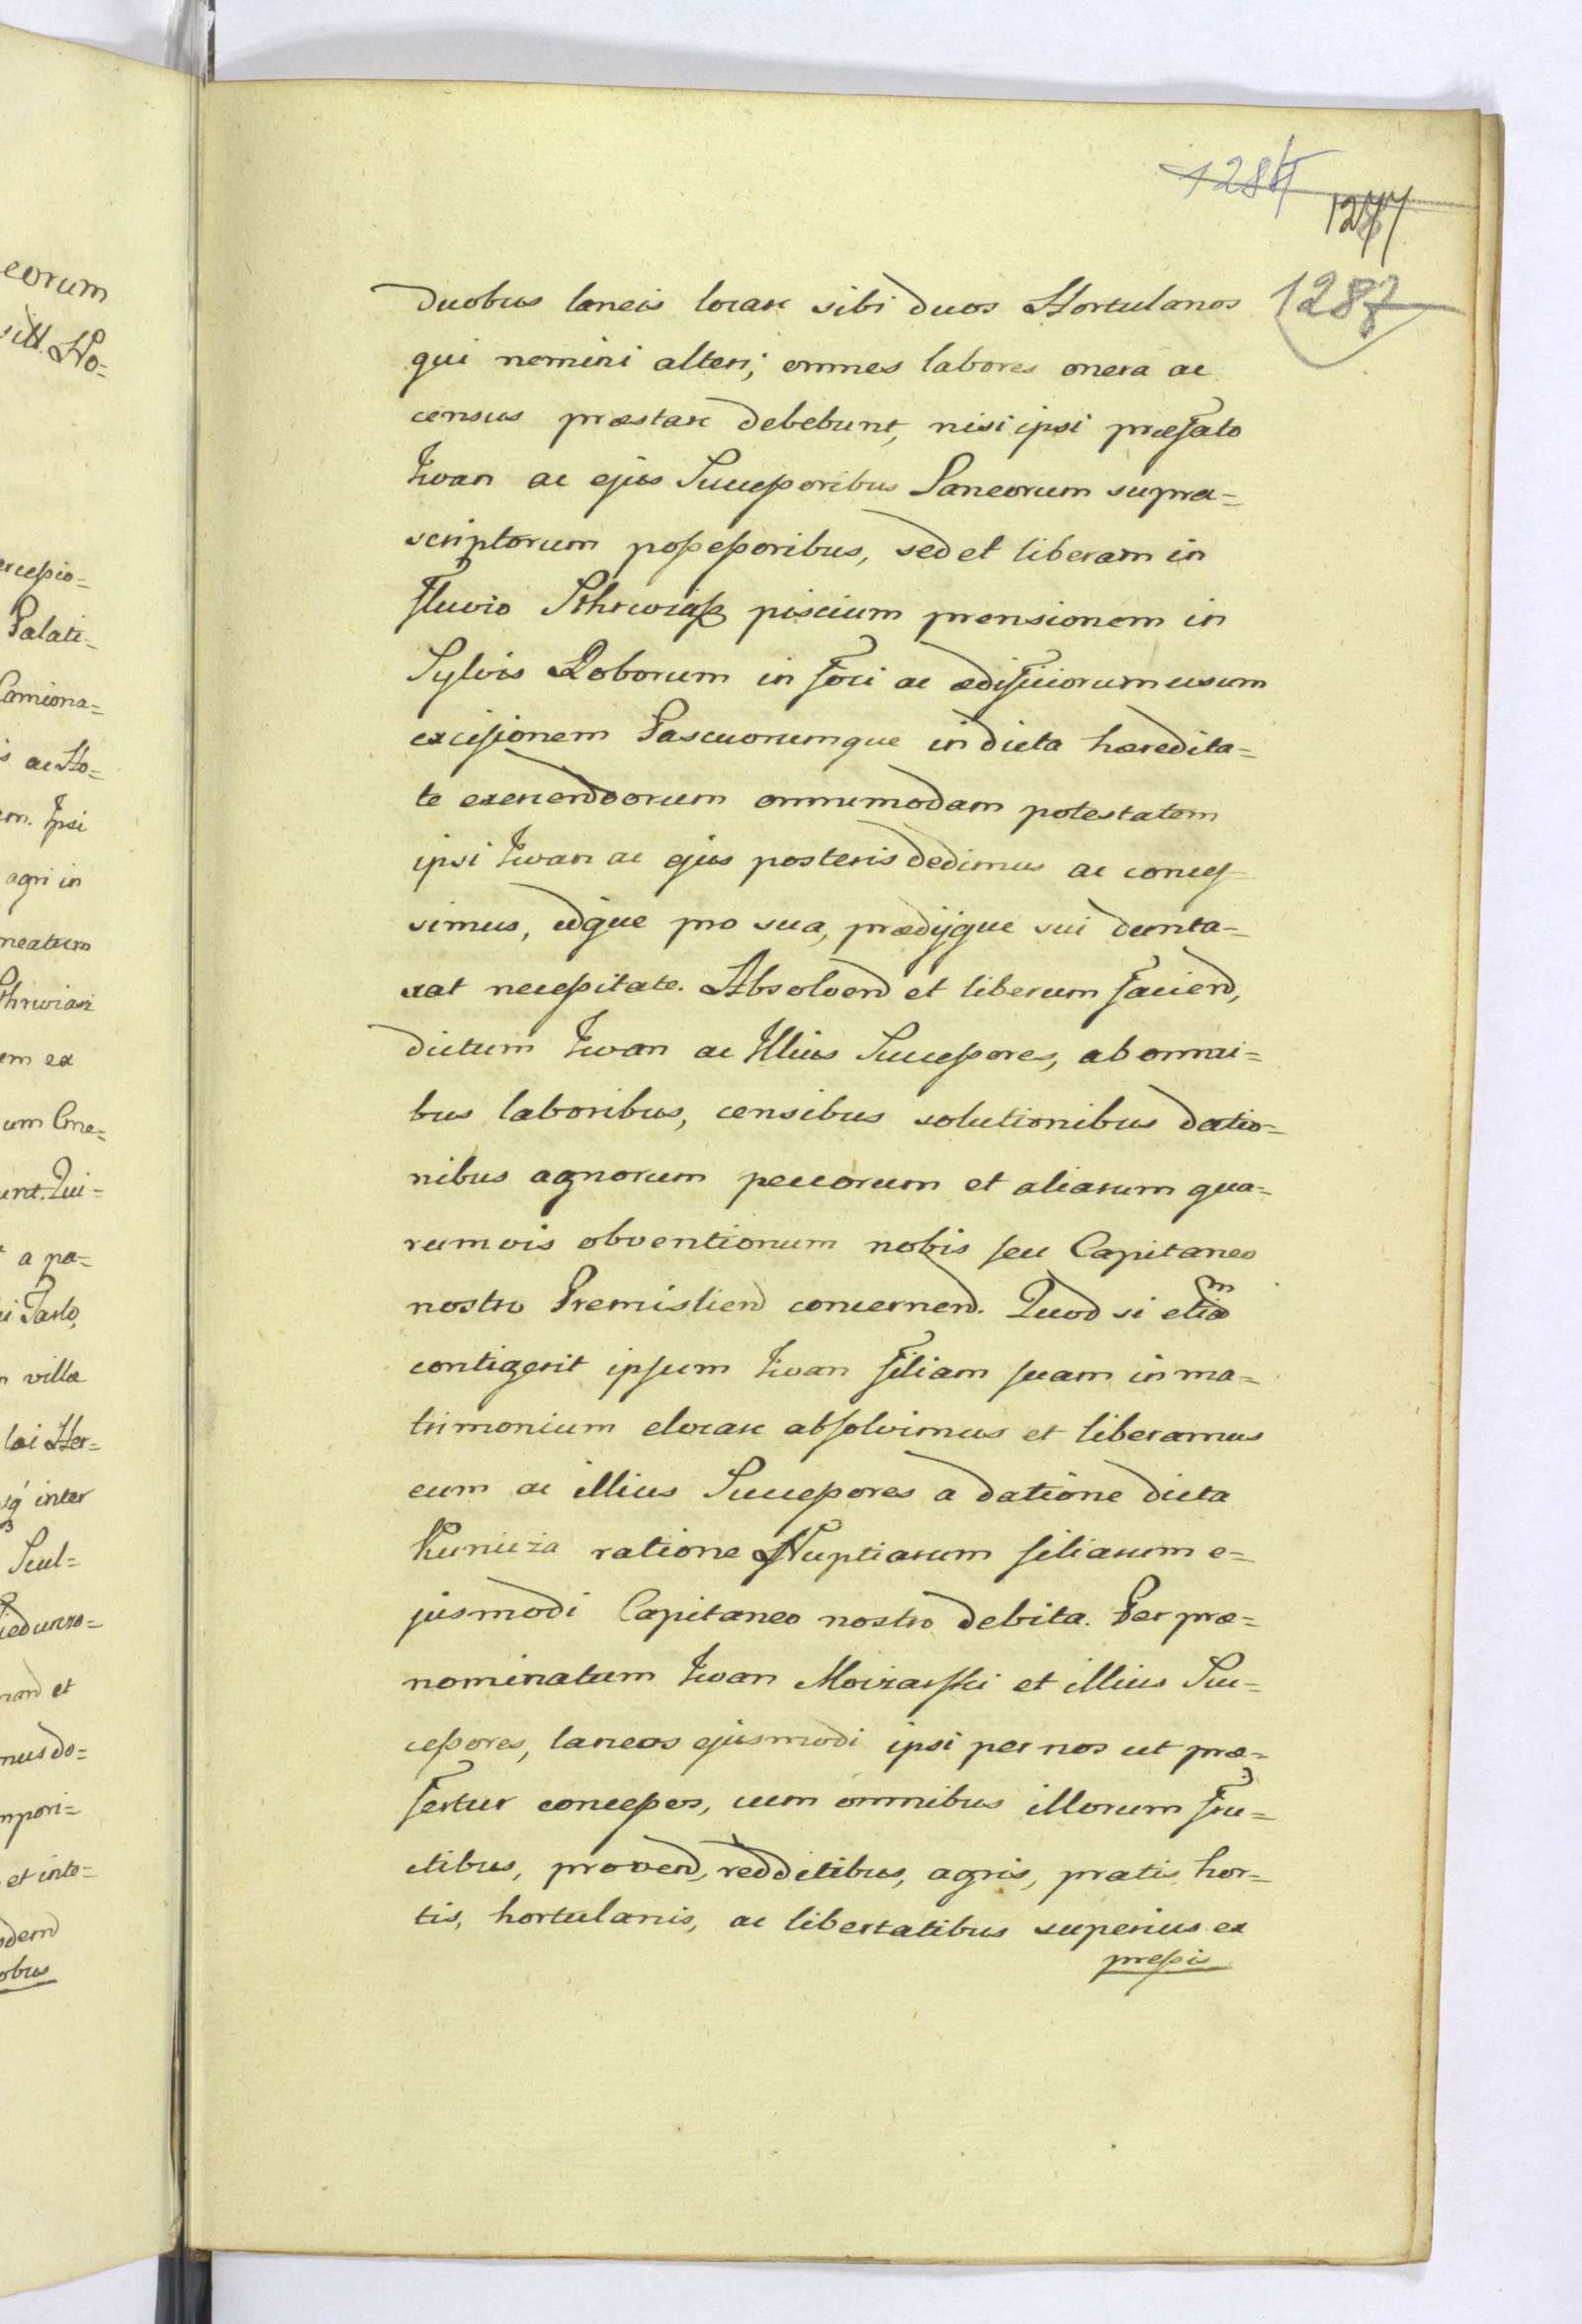 1277
1287
duobus laneis locare sibi duos Hortulanos
qui nemini alteri; omnes labores onera ac
census præstare debebunt, nisi ipsi præfato
Iwan ac ejus Successoribus Laneorum supra=
scriptorum possessoribus, sed et liberam in
Fluvio piscium prensionem in
Sylvis Roborum in foci ac ædificiorum usum
excisionem Pascuorumque in dicta hæredita=
te exercendorum omnimodam potestatem
ipsi Iwan ac ejus posteris dedimus ac conces=
simus, idque pro sua, prædijque sui dunta=
xat necessitate. Absolvend et liberum faciend,
dictum Iwan ac Illius Successores, ab omni=
bus laboribus, censibus solutionibus datio=
nibus agnorum pecorum et aliarum qua=
rumvis obventionum nobis seu Capitaneo
nostro Premisliend concernend. Quod si etiam
contigerit ipsum Iwan filiam suam in ma=
trimonium elocare absolvimus et liberamus
eum ac illius Successores a datione dicta
Kuniza ratione Nuptiarum filiarum e=
jusmodi Capitaneo nostro debita. Per præ=
nominatum Iwan et illius Suc=
cessores, laneos ejusmodi ipsi per nos ut præ=
fertur concessos, cum omnibus illorum fru=
ctibus, provend, redditibus, agris, pratis, hor=
tis, hortulanis, ac libertatibus superius ex
pressis
eorum
Palati=
ac Ho=
Ipsi
agri in
em ex
a pa=
villæ
inter
et
et inte=
obus